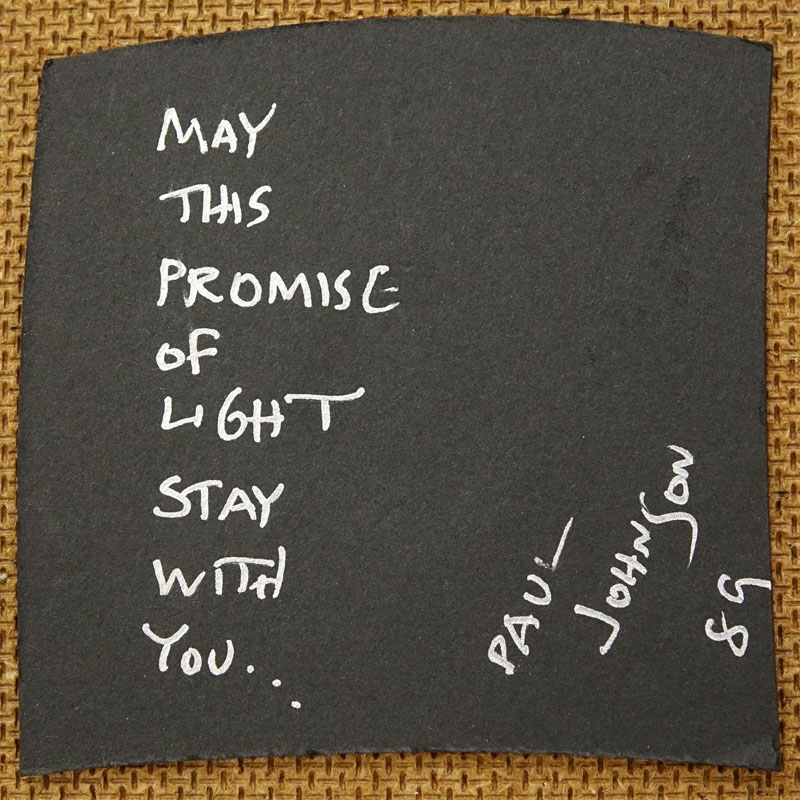 MAY
THIS
PROMISE
OF
LIGHT
STAY
WITH
YOU...
PAUL
JOHNSON
89